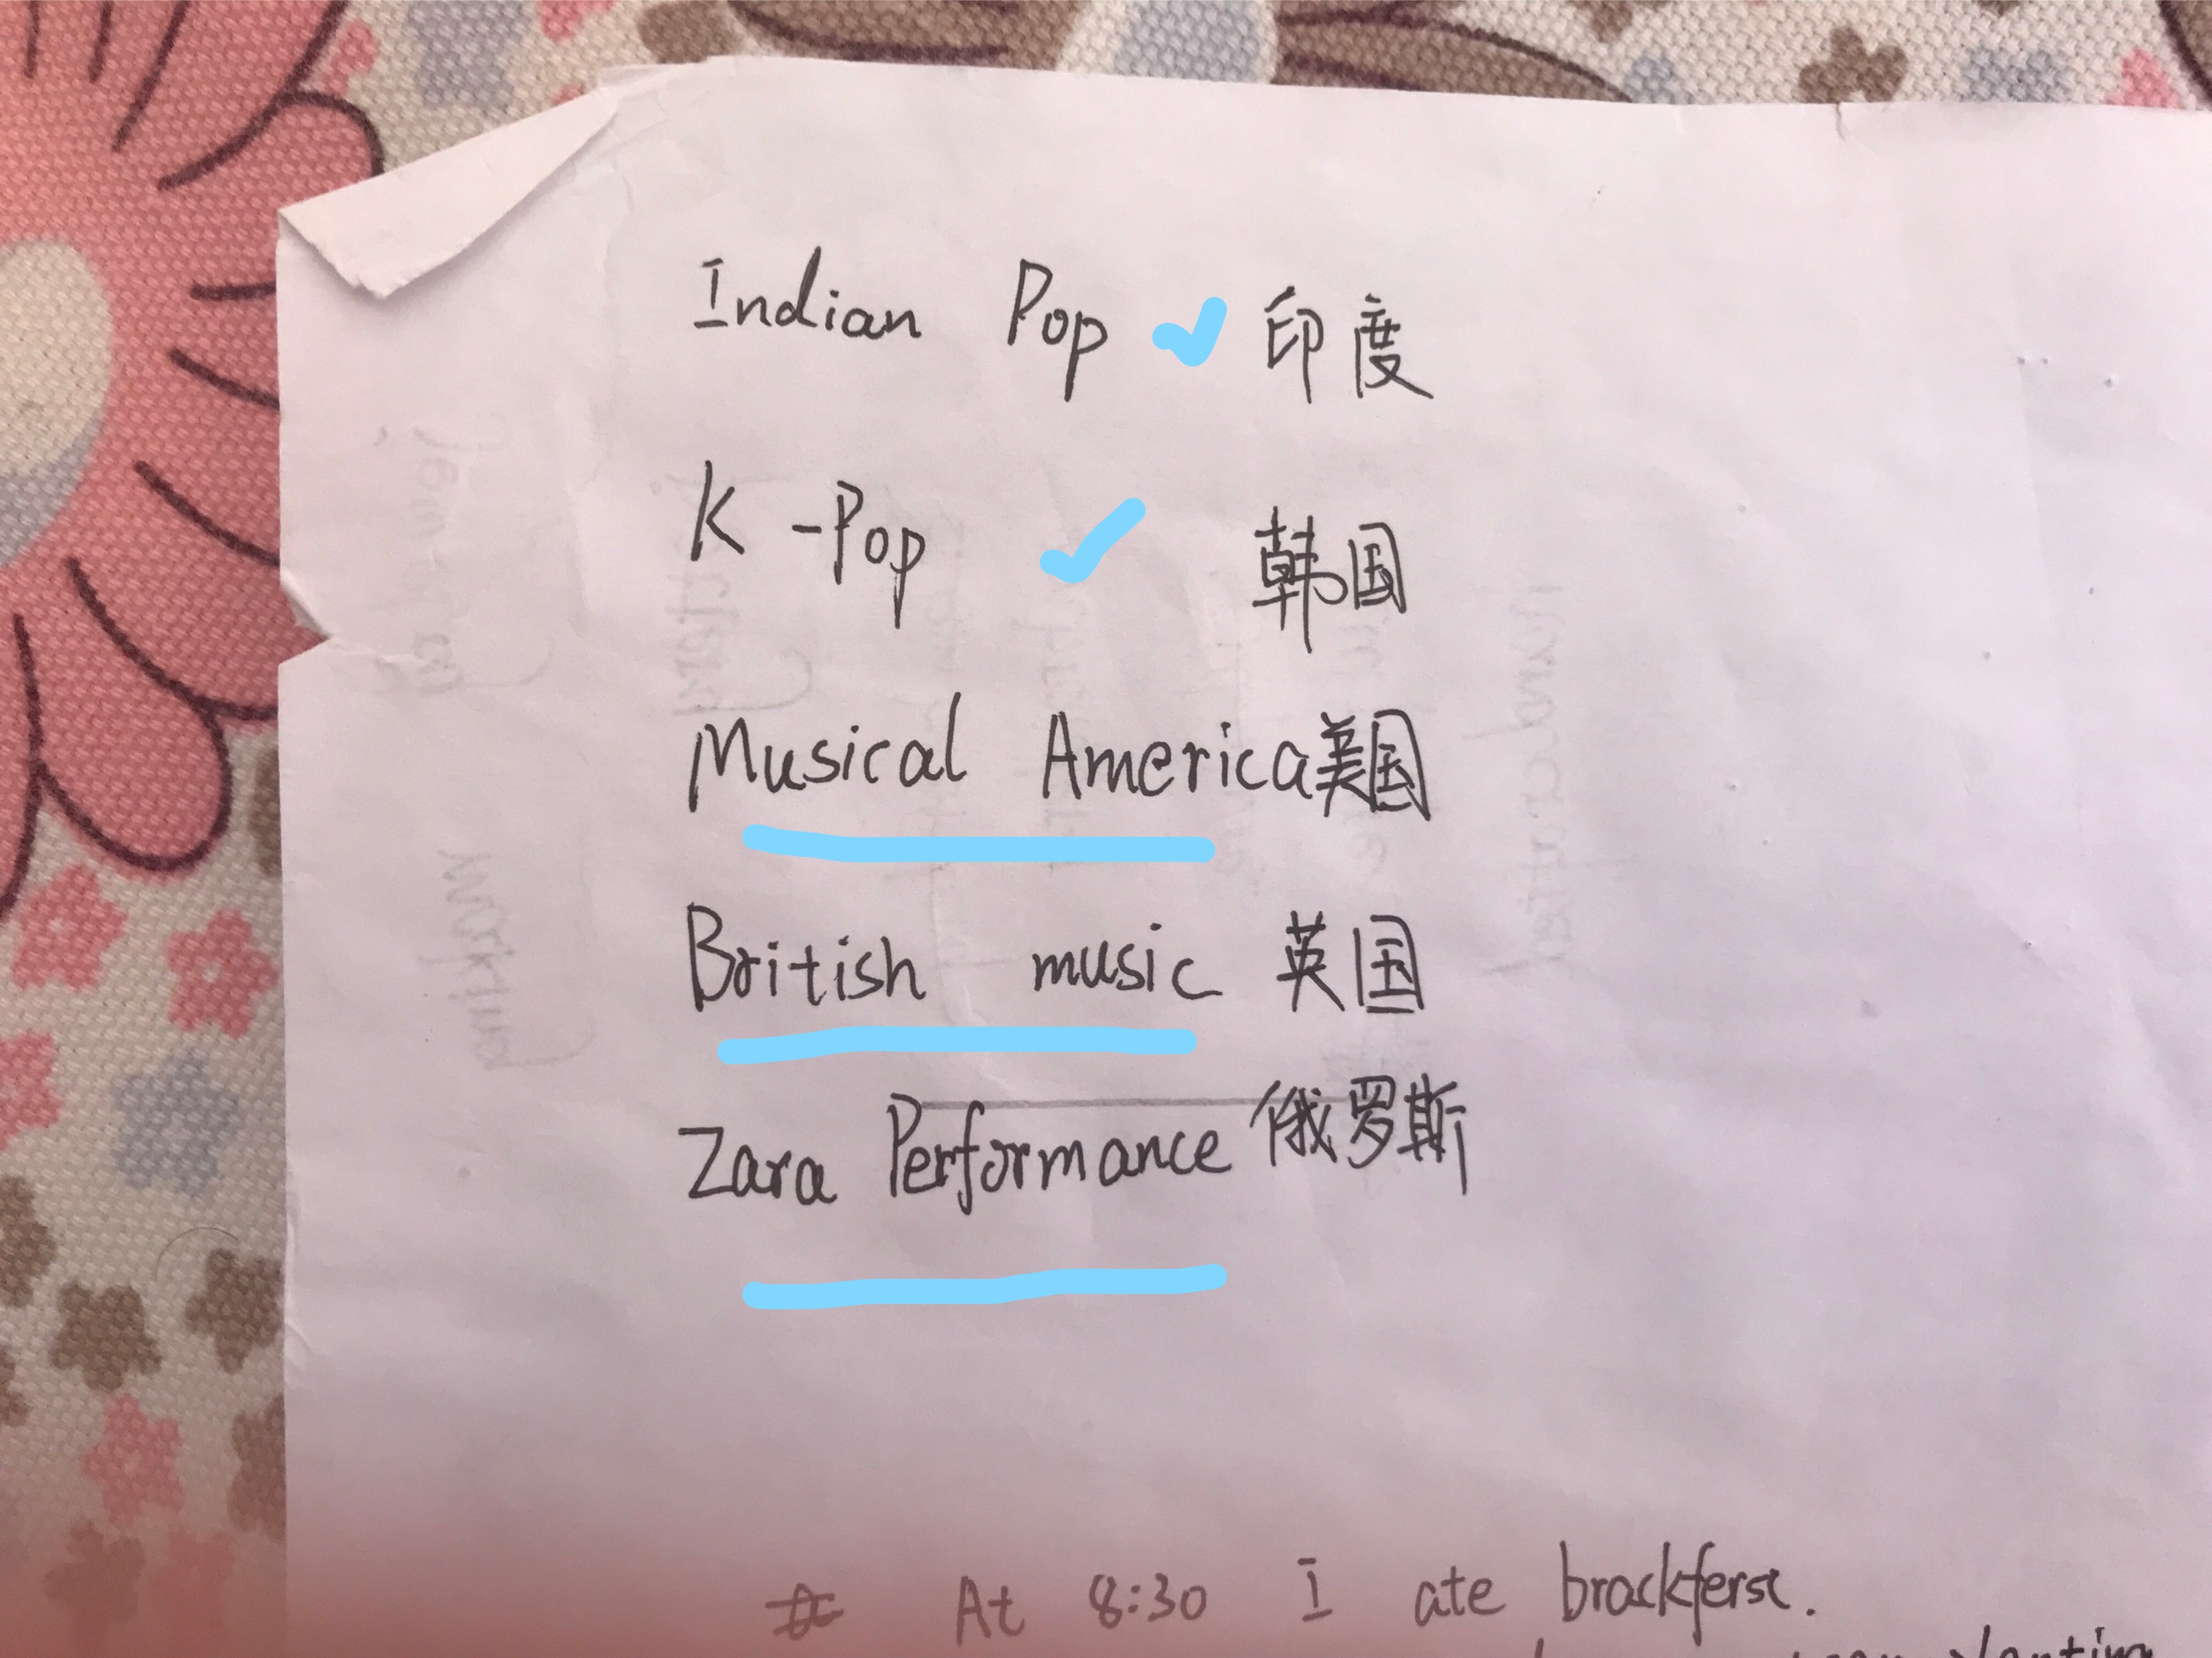 Indian Pop 印度
K-Pop 韩国
Musical America美国
British music 英国
Zara Performance 俄罗斯
At 8:30 I ate brackferse.